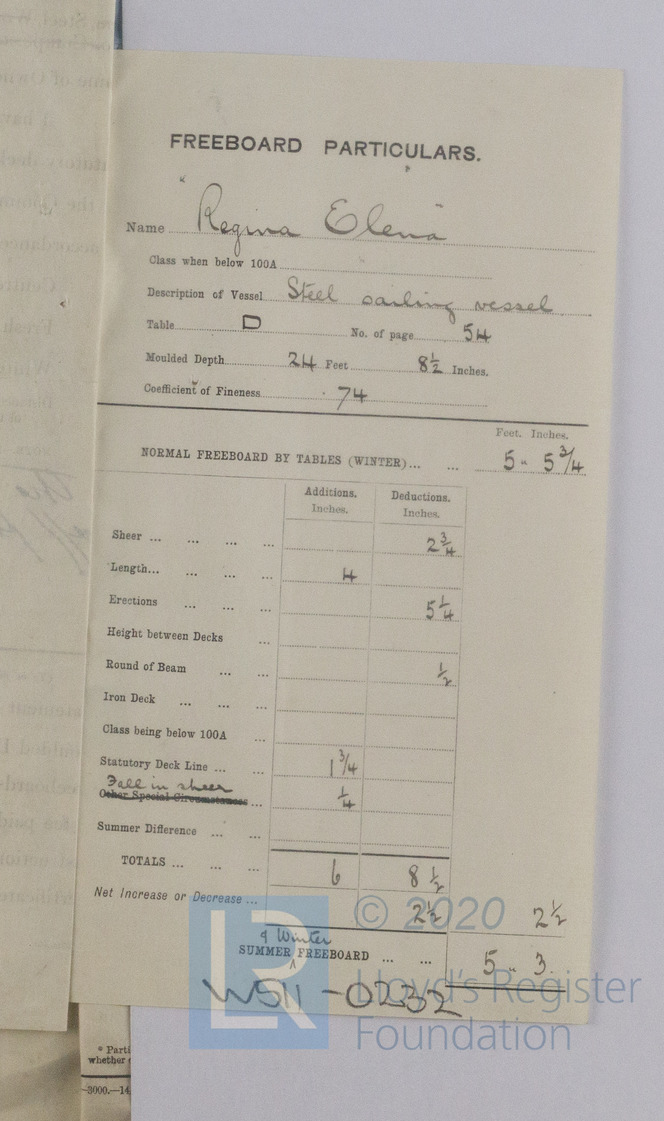 FREEBOARD PARTICULARS.
Name "Regina Elena"
Class when below 100A
Description of Vessel Steel sailing vessel
Table D No. of page 54
Moulded Depth 24 Feet 8½ Inches.
Coefficient of Fineness .74
Feet. Inches.
NORMAL FREEBOARD BY TABLES (WINTER)... ... 5 - 5¾
Additions. Deductions.
Inches. Inches.
Sheer ... ... ... ... 2¾
Length... ... ... ... 4
Erections ... ... ... 5¼
Height between Decks ...
Round of Beam ... ... ½
Iron Deck ... ... ...
Class being below 100A ...
Statutory Deck Line ... ... 1¾
Fall in sheer
Other Special Circumstances ... ¼
Summer Difference ... ...
TOTALS ... ... ... 6 8½
Net Increase or Decrease ... 2½ 2½
& Winter
SUMMER FREEBOARD ... ... 5 - 3.
W511-0232
© 2020
Lloyd's Register
Foundation
LR
* Parti
whether
—3000.—14